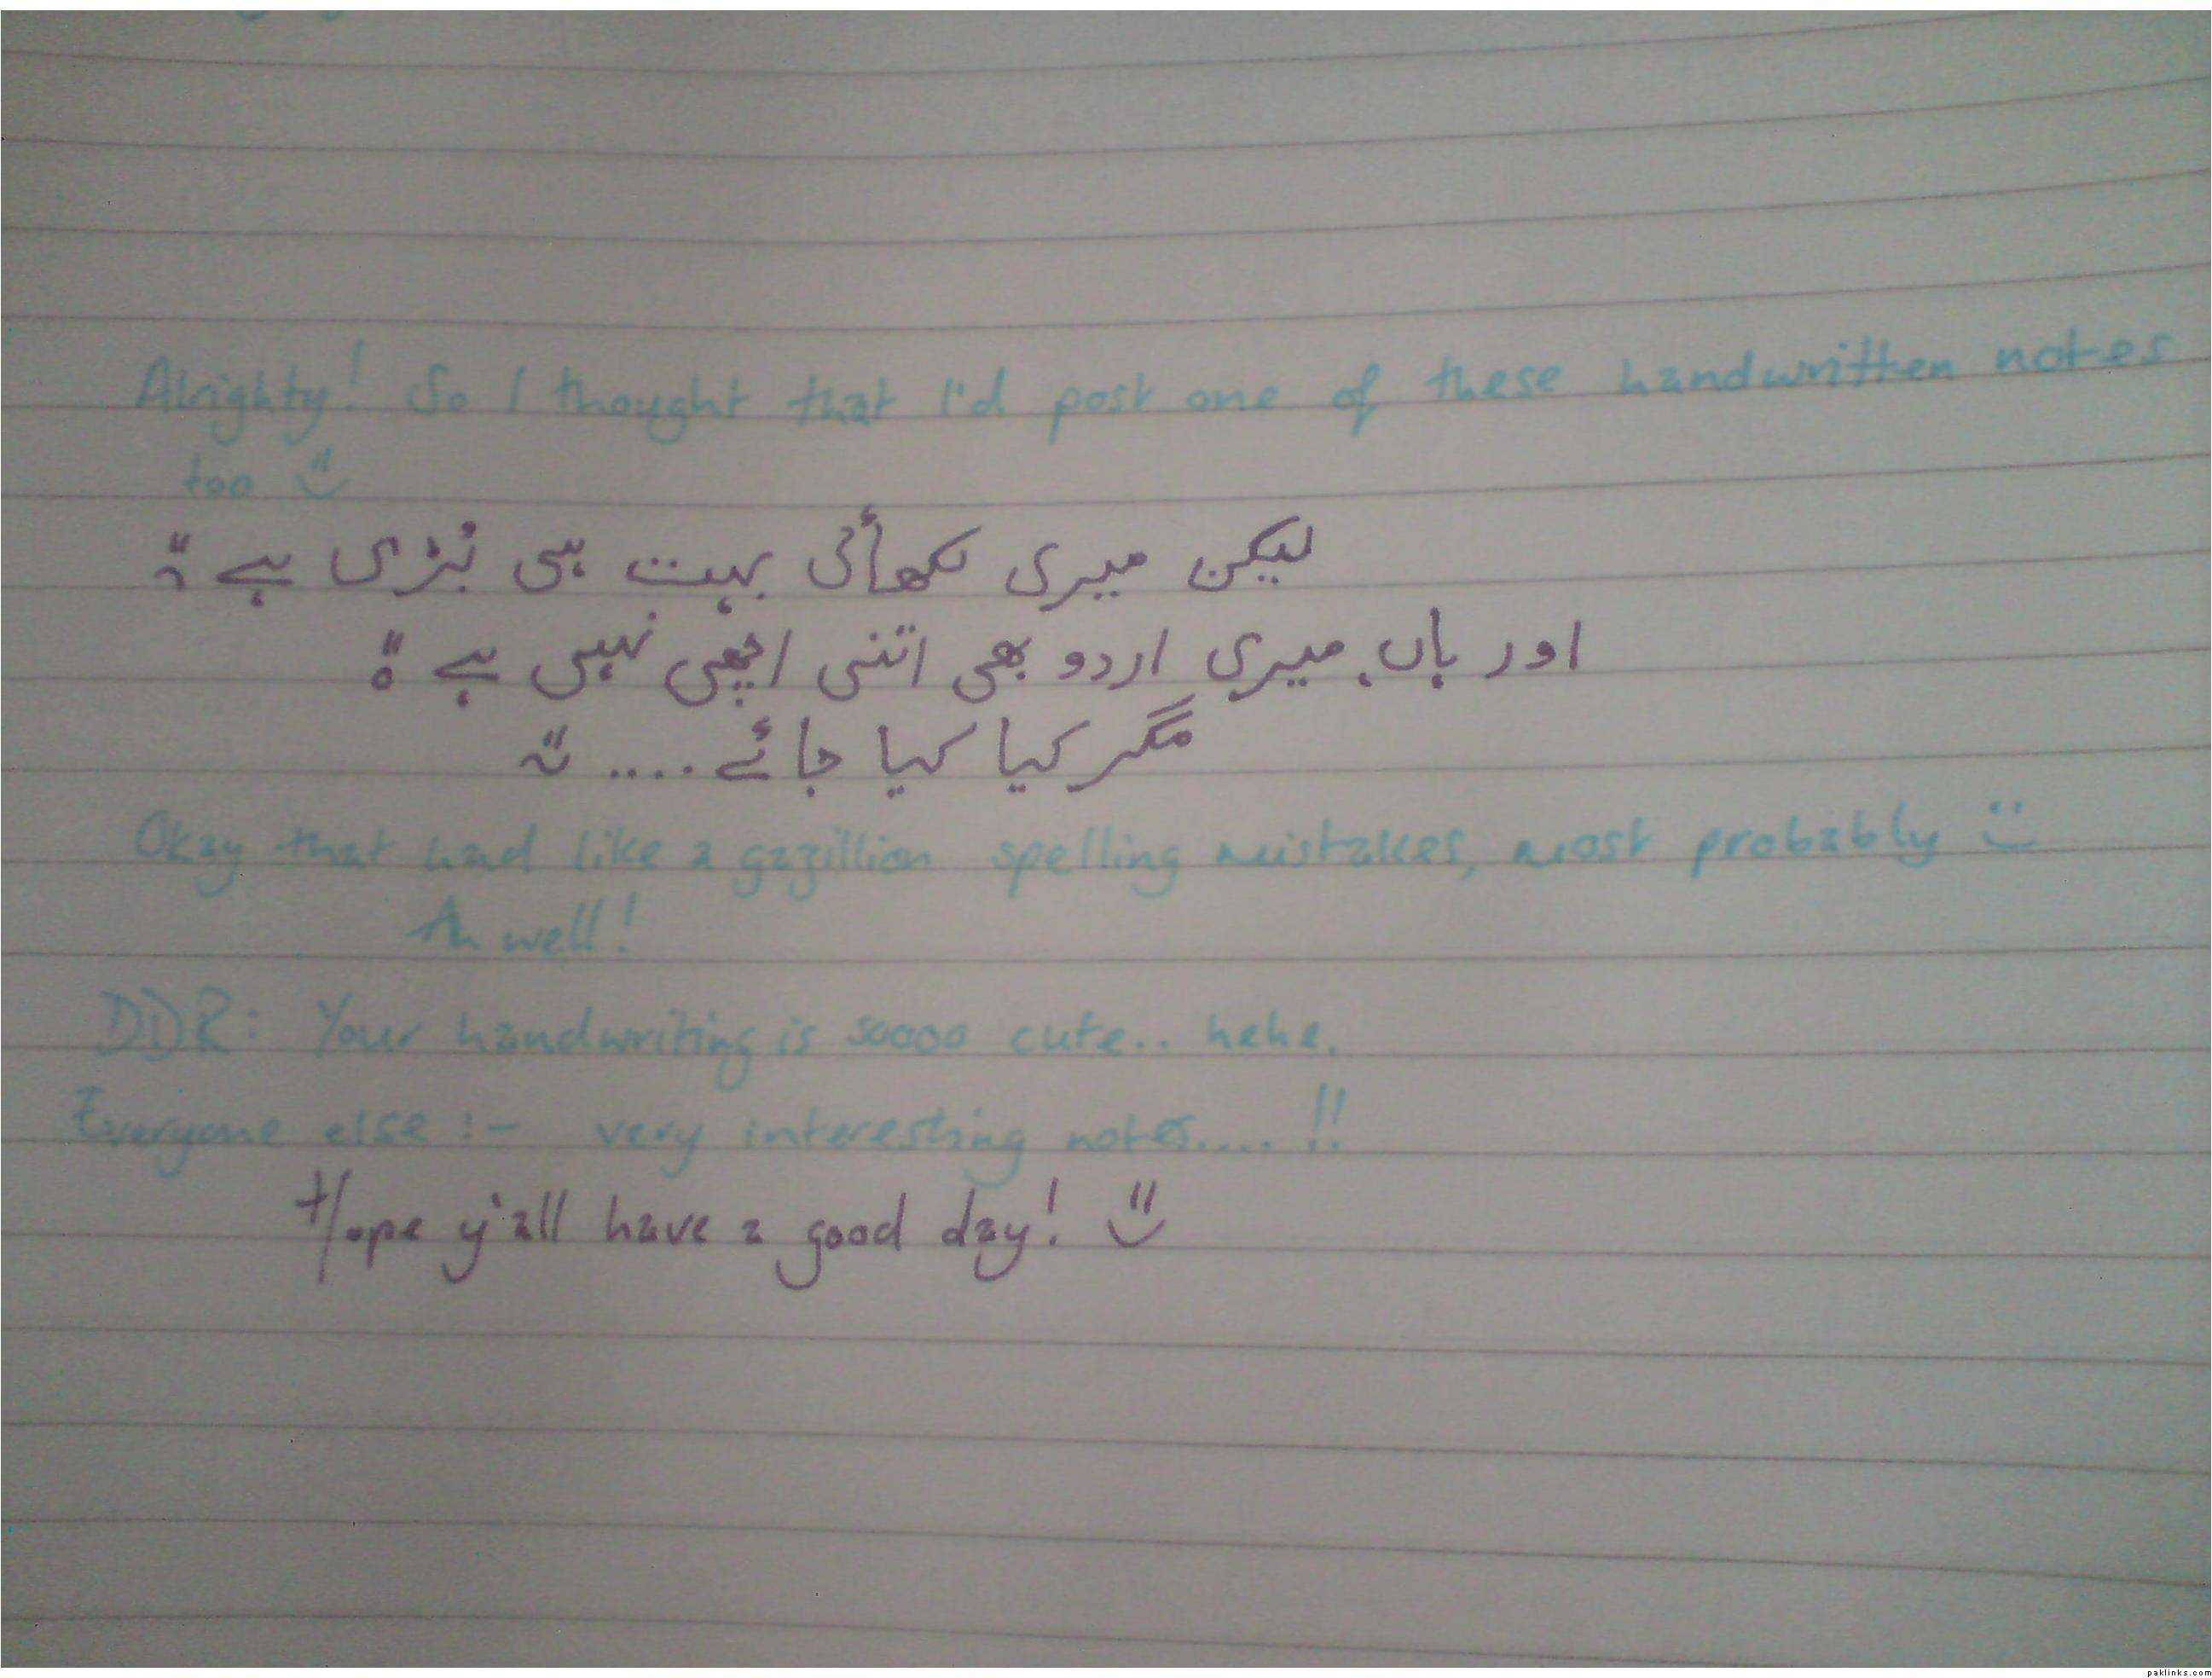 Alrighty! So I thought that I'd post one of these handwritten notes
too
لیکن میری لکھأئی بہت ہی بُڑی ہے
اور ہاں، میری اردو بھی اتنی اچھی نہیں ہے
مگر کیا کیا جائے....
Okay that had like a gazillion spelling mistakes, most probably
Ah well!
DDR: Your handwriting is soooo cute.. hehe.
Everyone else :- very interesting notes..... !!
Hope y'all have a good day!
paklinks.com